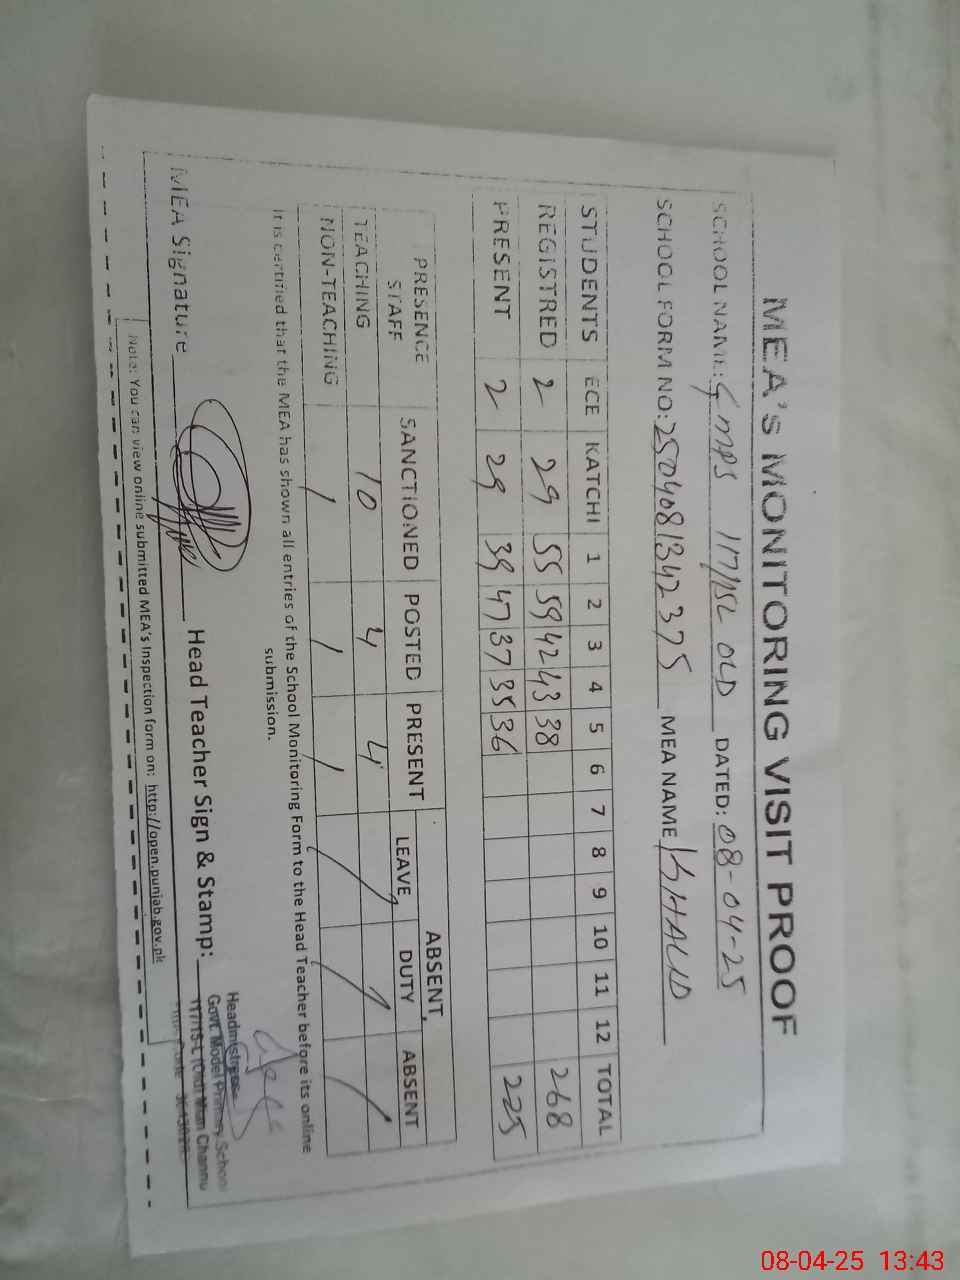 MEA's MONITORING VISIT PROOF
SCHOOL NAME: GMPS 117/15L OLD DATED: 08-04-25
SCHOOL FORM NO: 2504081342375 MEA NAME KHALID
STUDENTS ECE KATCHI 1 2 3 4 5 6 7 8 9 10 11 12 TOTAL
REGISTRED 2 29 55 59 42 43 38 268
PRESENT 2 29 39 47 37 35 36 225
PRESENCE STAFF SANCTIONED POSTED PRESENT ABSENT
LEAVE DUTY ABSENT
TEACHING 10 4 4 / / /
NON-TEACHING / / / / / /
It is certified that the MEA has shown all entries of the School Monitoring Form to the Head Teacher before its online
submission.
MEA Signature Head Teacher Sign & Stamp:
Headmistress
Govt. Model Primary School
117/15-L (Old) Mian Channu
Note: You can view online submitted MEA's Inspection form on: http://open.punjab.gov.pk
08-04-25 13:43